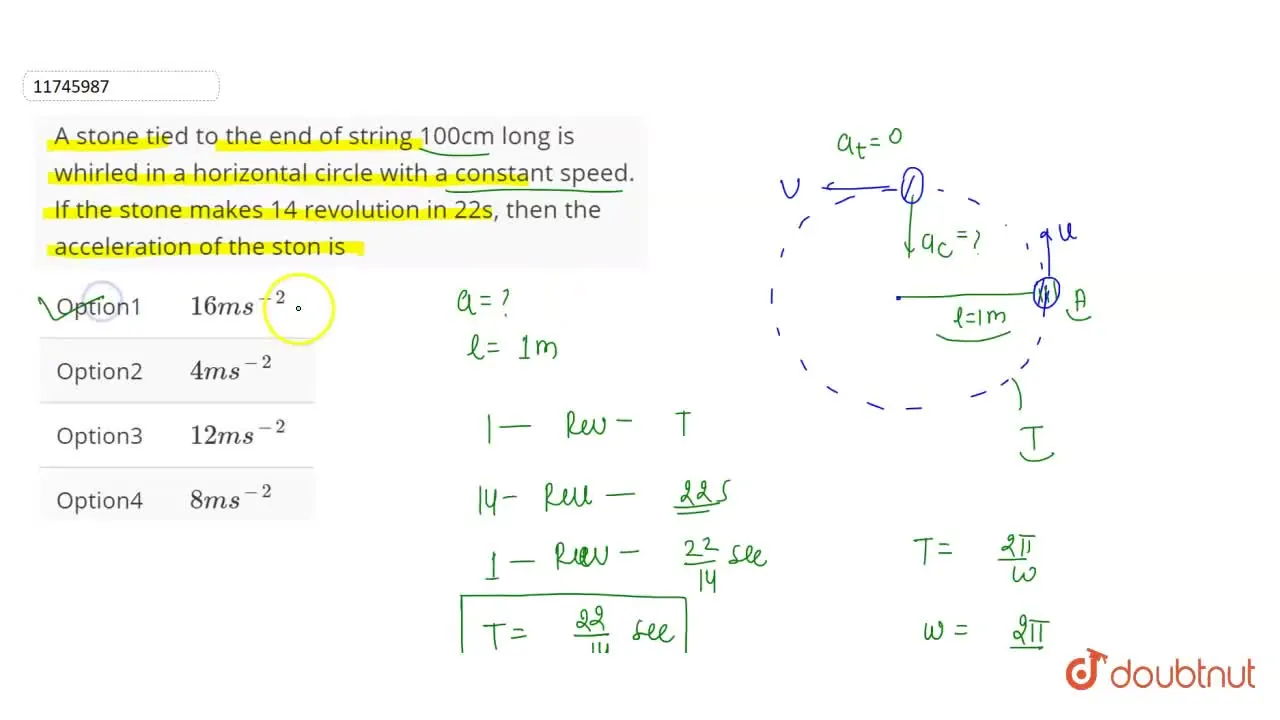 11745987
A stone tied to the end of string 100cm long is
whirled in a horizontal circle with a constant speed.
If the stone makes 14 revolution in 22s, then the
acceleration of the ston is
Option1 16ms⁻²
Option2 4ms⁻²
Option3 12ms⁻²
Option4 8ms⁻²
a = ?
l = 1m
1 — Rev — T
14 - Rev — 22s
1 — Rev — 22/14 sec
T = 22/14 sec
aₜ = 0
v
a_c = ?
u
l=1m
A
T
T = 2π/ω
ω = 2π
doubtnut